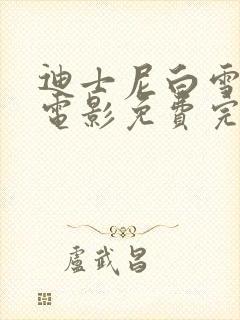 迪士尼白雪
電影免費完
盧武昌